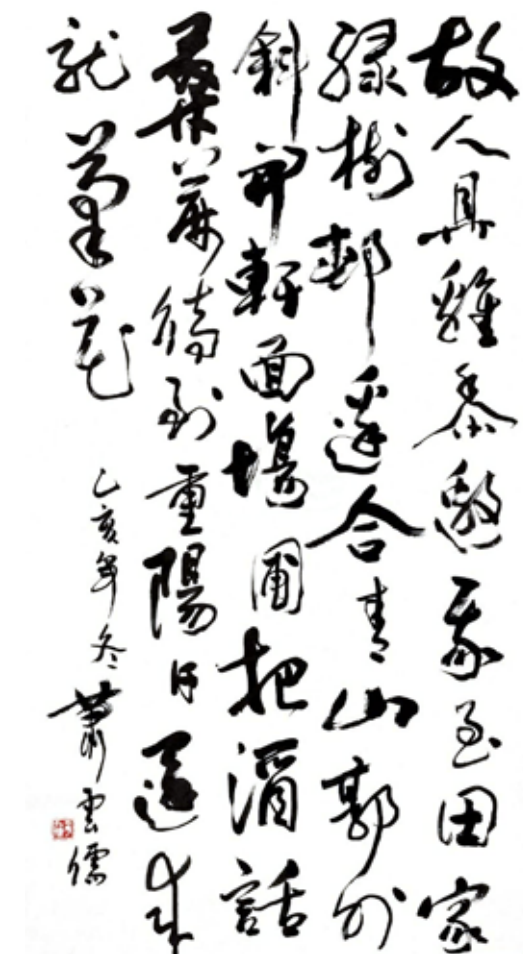 故人具雞黍邀我至田家
綠樹邨邊合青山郭外
斜開軒面場圃把酒話
桑麻待到重陽日還來
就菊花
乙亥年冬蕭雲儒